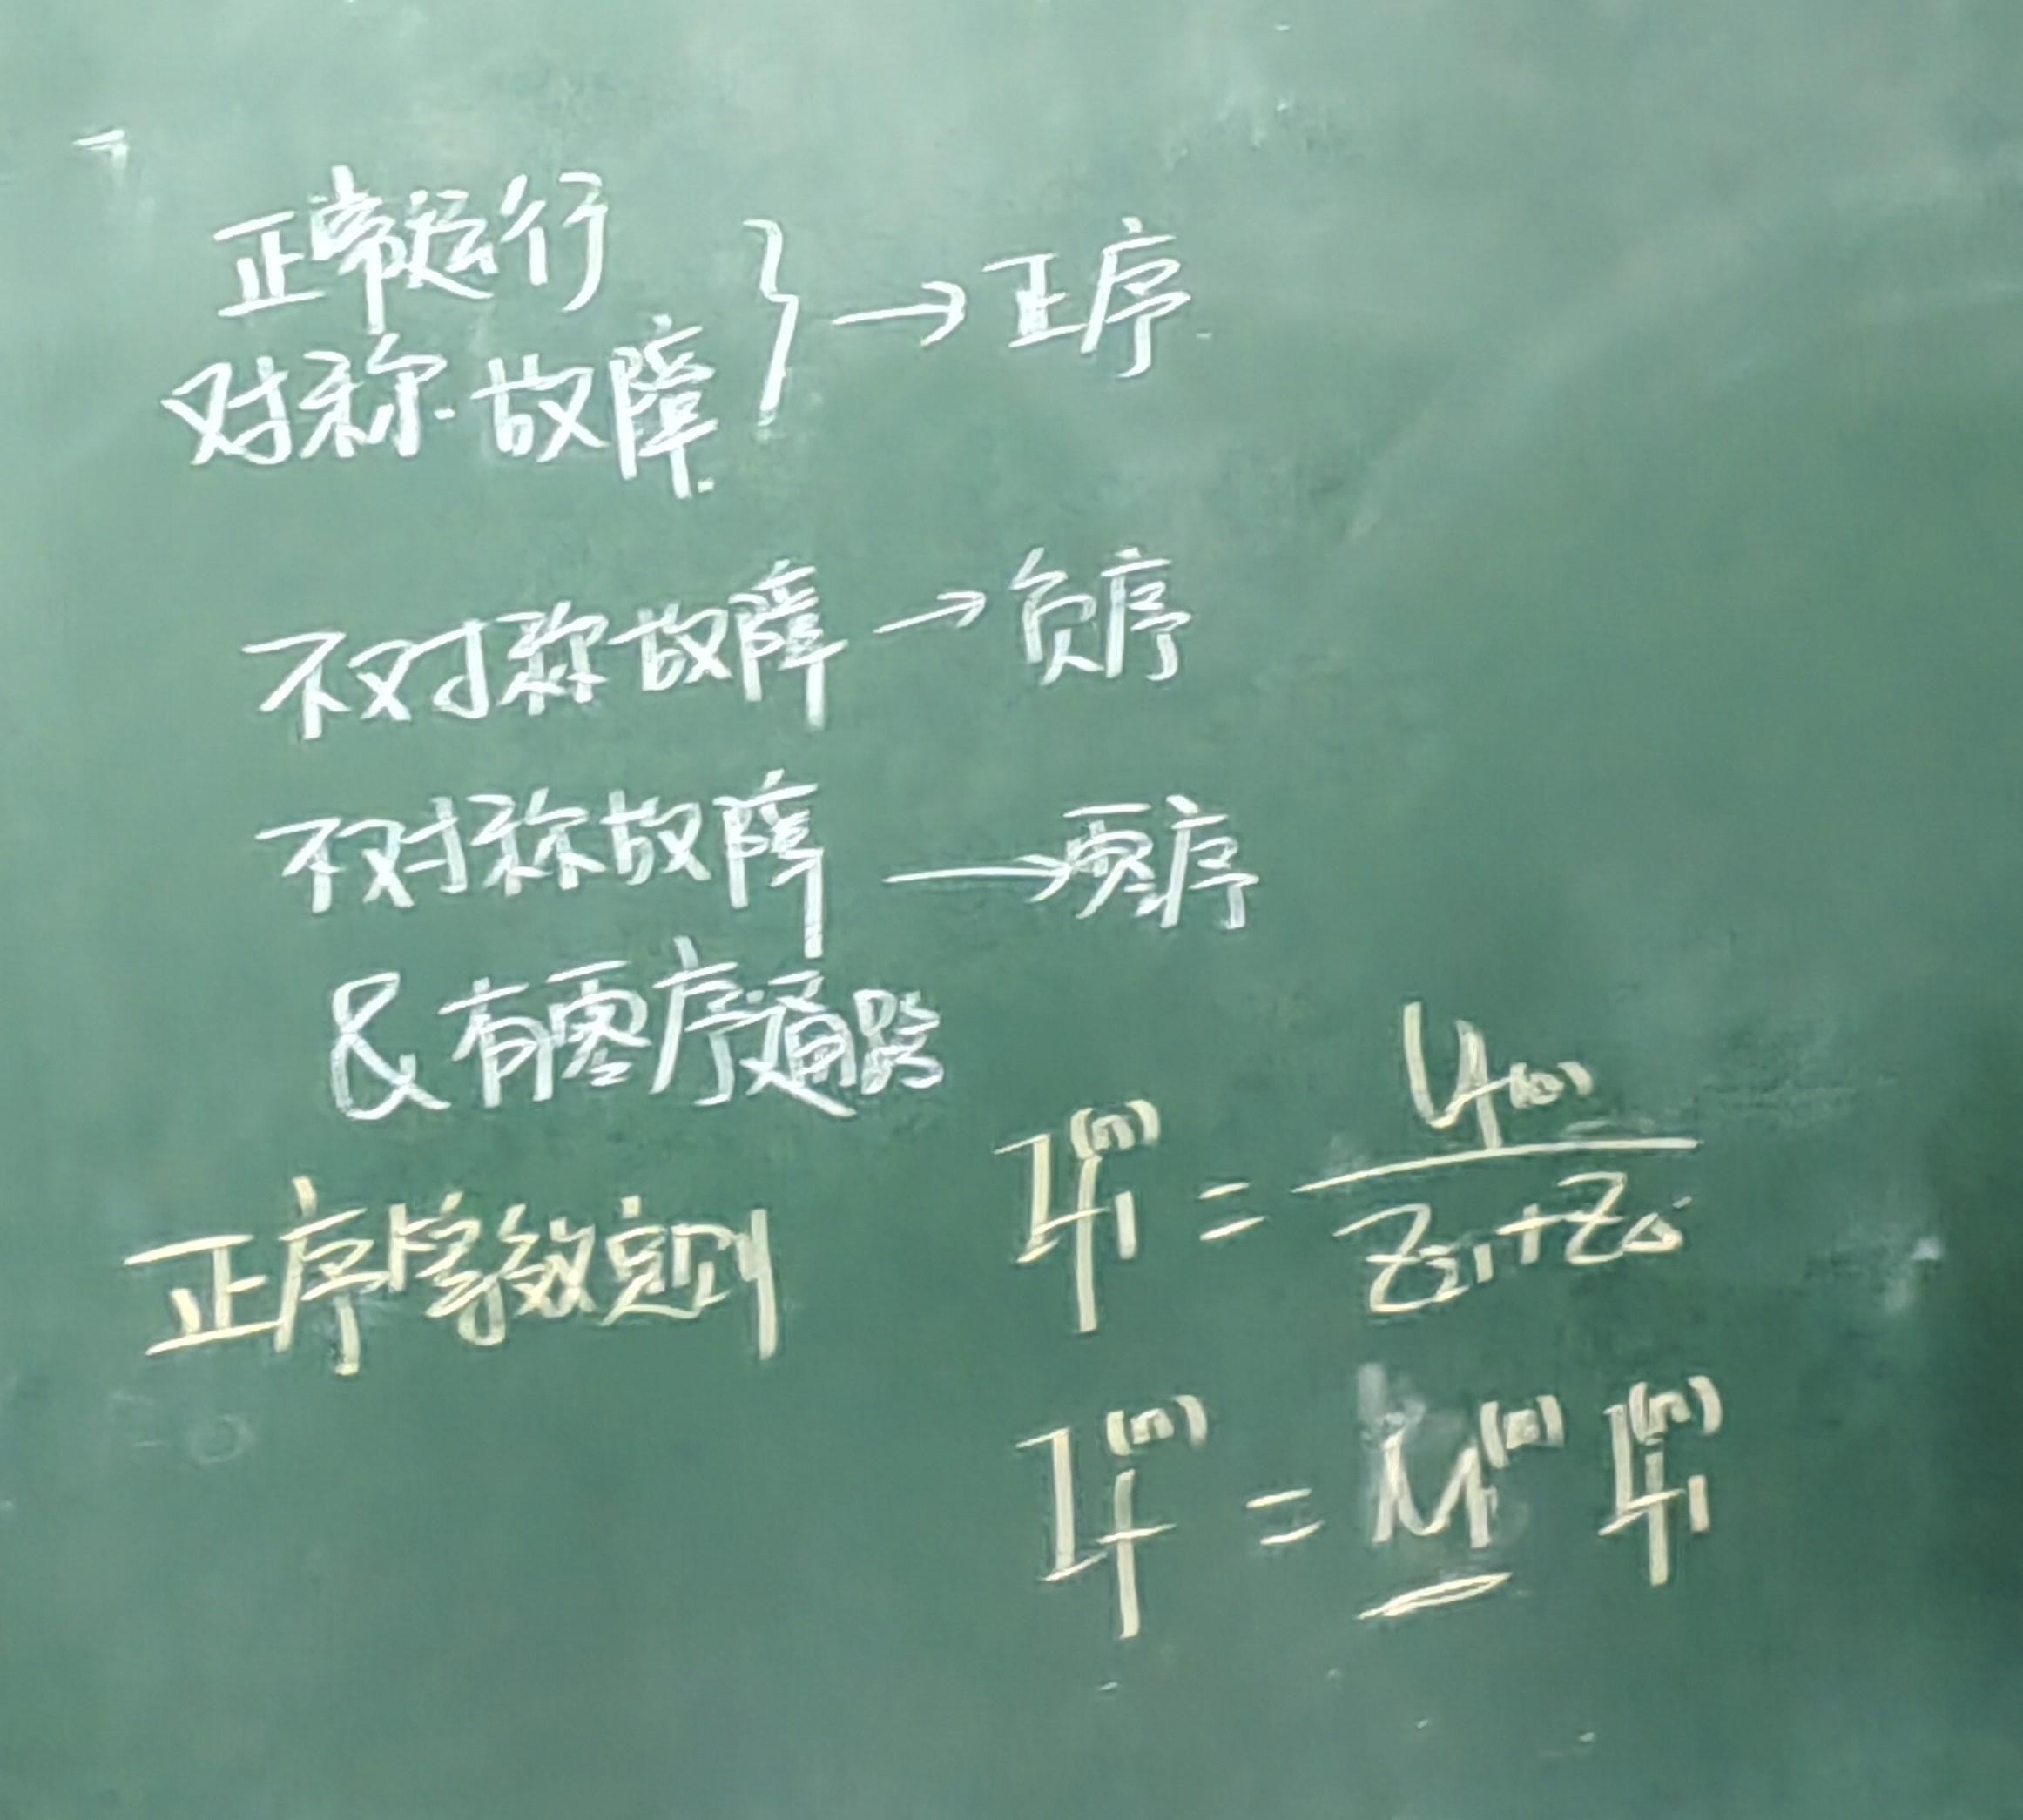 正常运行
对称故障 } → 正序
不对称故障 → 负序
不对称故障 → 零序
& 有零序通路
正序等效定则
I_{f1}^{(n)} = \frac{U_{f(0)}}{Z_{Σ1}+Z_Δ}
I_f^{(n)} = M^{(n)} I_{f1}^{(n)}